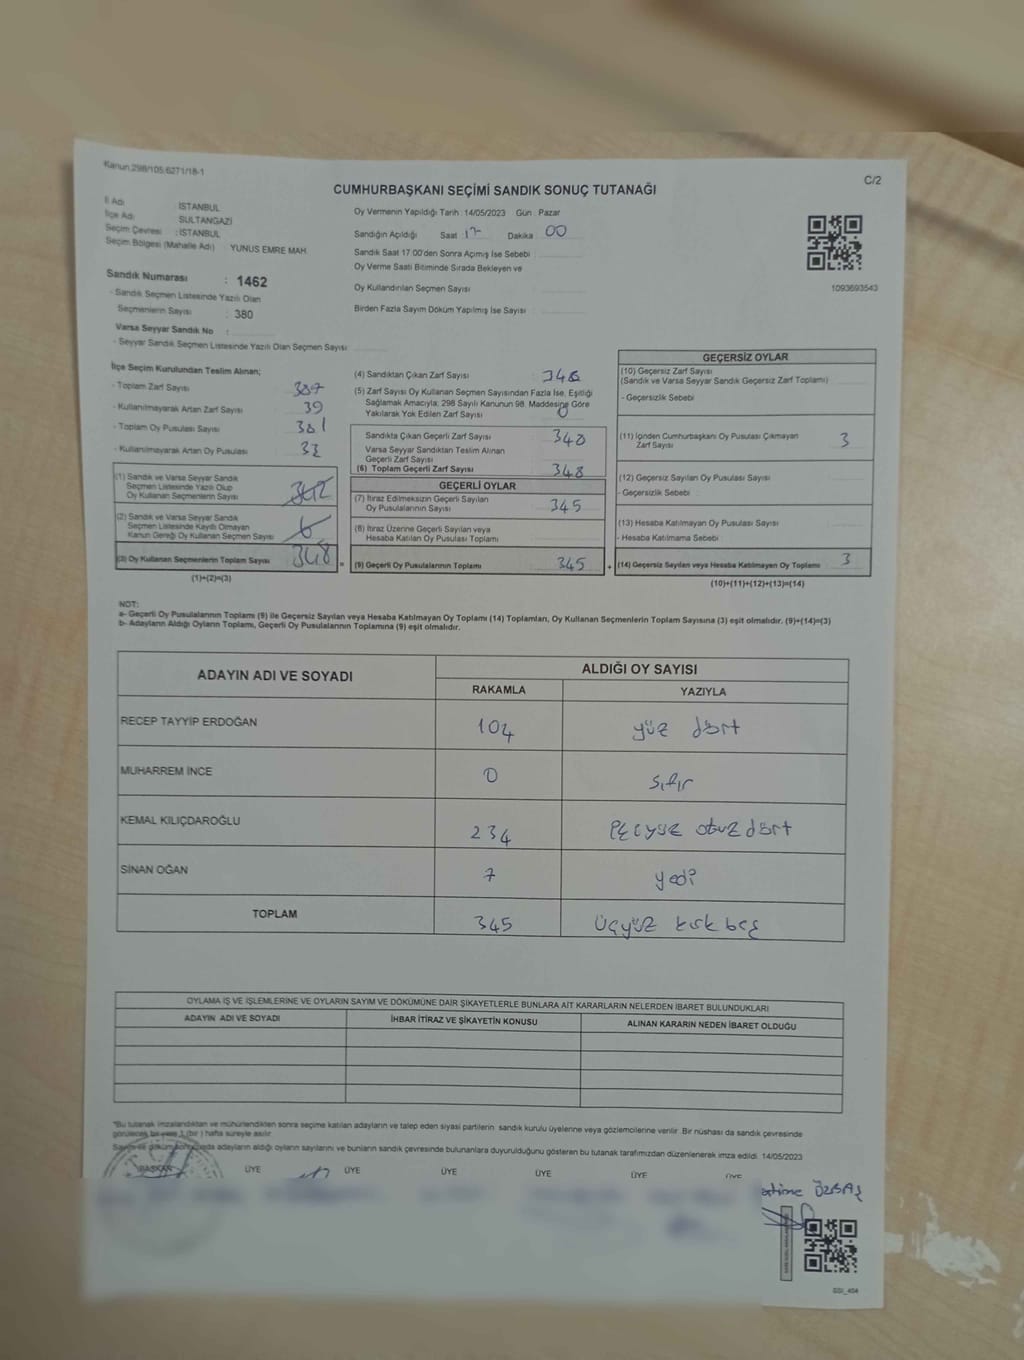 Kanun:298/105;6271/18-1
C/2
CUMHURBAŞKANI SEÇİMİ SANDIK SONUÇ TUTANAĞI
İl Adı : İSTANBUL
İlçe Adı : SULTANGAZİ
Seçim Çevresi : İSTANBUL
Seçim Bölgesi (Mahalle Adı) YUNUS EMRE MAH.
Sandık Numarası : 1462
- Sandık Seçmen Listesinde Yazılı Olan
Seçmenlerin Sayısı : 380
Varsa Seyyar Sandık No :
- Seyyar Sandık Seçmen Listesinde Yazılı Olan Seçmen Sayısı
Oy Vermenin Yapıldığı Tarih :14/05/2023 Gün : Pazar
Sandığın Açıldığı Saat 17 Dakika 00
Sandık Saat 17:00'den Sonra Açımış İse Sebebi :
Oy Verme Saati Bitiminde Sırada Bekleyen ve
Oy Kullandırılan Seçmen Sayısı
Birden Fazla Sayım Döküm Yapılmış İse Sayısı
1093693543
İlçe Seçim Kurulundan Teslim Alınan;
- Toplam Zarf Sayısı
- Kullanılmayarak Artan Zarf Sayısı 39
- Toplam Oy Pusulası Sayısı 381
- Kullanılmayarak Artan Oy Pusulası
(1) Sandık ve Varsa Seyyar Sandık
Seçmen Listesinde Yazılı Olup
Oy Kullanan Seçmenlerin Sayısı
(2) Sandık ve Varsa Seyyar Sandık
Seçmen Listesinde Kayıtlı Olmayan
Kanun Gereği Oy Kullanan Seçmen Sayısı 6
(3) Oy Kullanan Seçmenlerin Toplam Sayısı 348
(1)+(2)=(3)
(4) Sandıktan Çıkan Zarf Sayısı 348
(5) Zarf Sayısı Oy Kullanan Seçmen Sayısından Fazla İse, Eşitliği
Sağlamak Amacıyla; 298 Sayılı Kanunun 98. Maddesine Göre
Yakılarak Yok Edilen Zarf Sayısı 0
Sandıkta Çıkan Geçerli Zarf Sayısı 348
Varsa Seyyar Sandıktan Teslim Alınan
Geçerli Zarf Sayısı
(6) Toplam Geçerli Zarf Sayısı 348
GEÇERLİ OYLAR
(7) İtiraz Edilmeksizin Geçerli Sayılan
Oy Pusulalarının Sayısı 345
(8) İtiraz Üzerine Geçerli Sayılan veya
Hesaba Katılan Oy Pusulası Toplamı
= (9) Geçerli Oy Pusulalarının Toplamı 345
GEÇERSİZ OYLAR
(10) Geçersiz Zarf Sayısı
(Sandık ve Varsa Seyyar Sandık Geçersiz Zarf Toplamı)
- Geçersizlik Sebebi
(11) İçinden Cumhurbaşkanı Oy Pusulası Çıkmayan
Zarf Sayısı 3
(12) Geçersiz Sayılan Oy Pusulası Sayısı
- Geçersizlik Sebebi :
(13) Hesaba Katılmayan Oy Pusulası Sayısı
- Hesaba Katılmama Sebebi :
+ (14) Geçersiz Sayılan veya Hesaba Katılmayan Oy Toplamı 3
(10)+(11)+(12)+(13)=(14)
NOT:
a- Geçerli Oy Pusulalarının Toplamı (9) ile Geçersiz Sayılan veya Hesaba Katılmayan Oy Toplamı (14) Toplamları, Oy Kullanan Seçmenlerin Toplam Sayısına (3) eşit olmalıdır. (9)+(14)=(3)
b- Adayların Aldığı Oyların Toplamı, Geçerli Oy Pusulalarının Toplamına (9) eşit olmalıdır.
ADAYIN ADI VE SOYADI ALDIĞI OY SAYISI
RAKAMLA YAZIYLA
RECEP TAYYİP ERDOĞAN 104 yüz dört
MUHARREM İNCE 0 sıfır
KEMAL KILIÇDAROĞLU 234 otuz dört
SİNAN OĞAN 7 yedi
TOPLAM 345 üçyüz kırk beş
OYLAMA İŞ VE İŞLEMLERİNE VE OYLARIN SAYIM VE DÖKÜMÜNE DAİR ŞİKAYETLERLE BUNLARA AİT KARARLARIN NELERDEN İBARET BULUNDUKLARI
ADAYIN ADI VE SOYADI İHBAR İTİRAZ VE ŞİKAYETİN KONUSU ALINAN KARARIN NEDEN İBARET OLDUĞU
*Bu tutanak imzalandıktan ve mühürlendikten sonra seçime katılan adayların ve talep eden siyasi partilerin sandık kurulu üyelerine veya gözlemcilerine verilir. Bir nüshası da sandık çevresinde
görülecek bir yere 1 (bir) hafta süreyle asılır.
Sayım ve döküm sonucunda adayların aldığı oyların sayılarını ve bunların sandık çevresinde bulunanlara duyurulduğunu gösteren bu tutanak tarafımızdan düzenlenerek imza edildi. 14/05/2023
BAŞKAN ÜYE ÜYE ÜYE ÜYE ÜYE ÜYE
ÖZBAŞ
SSİ_404